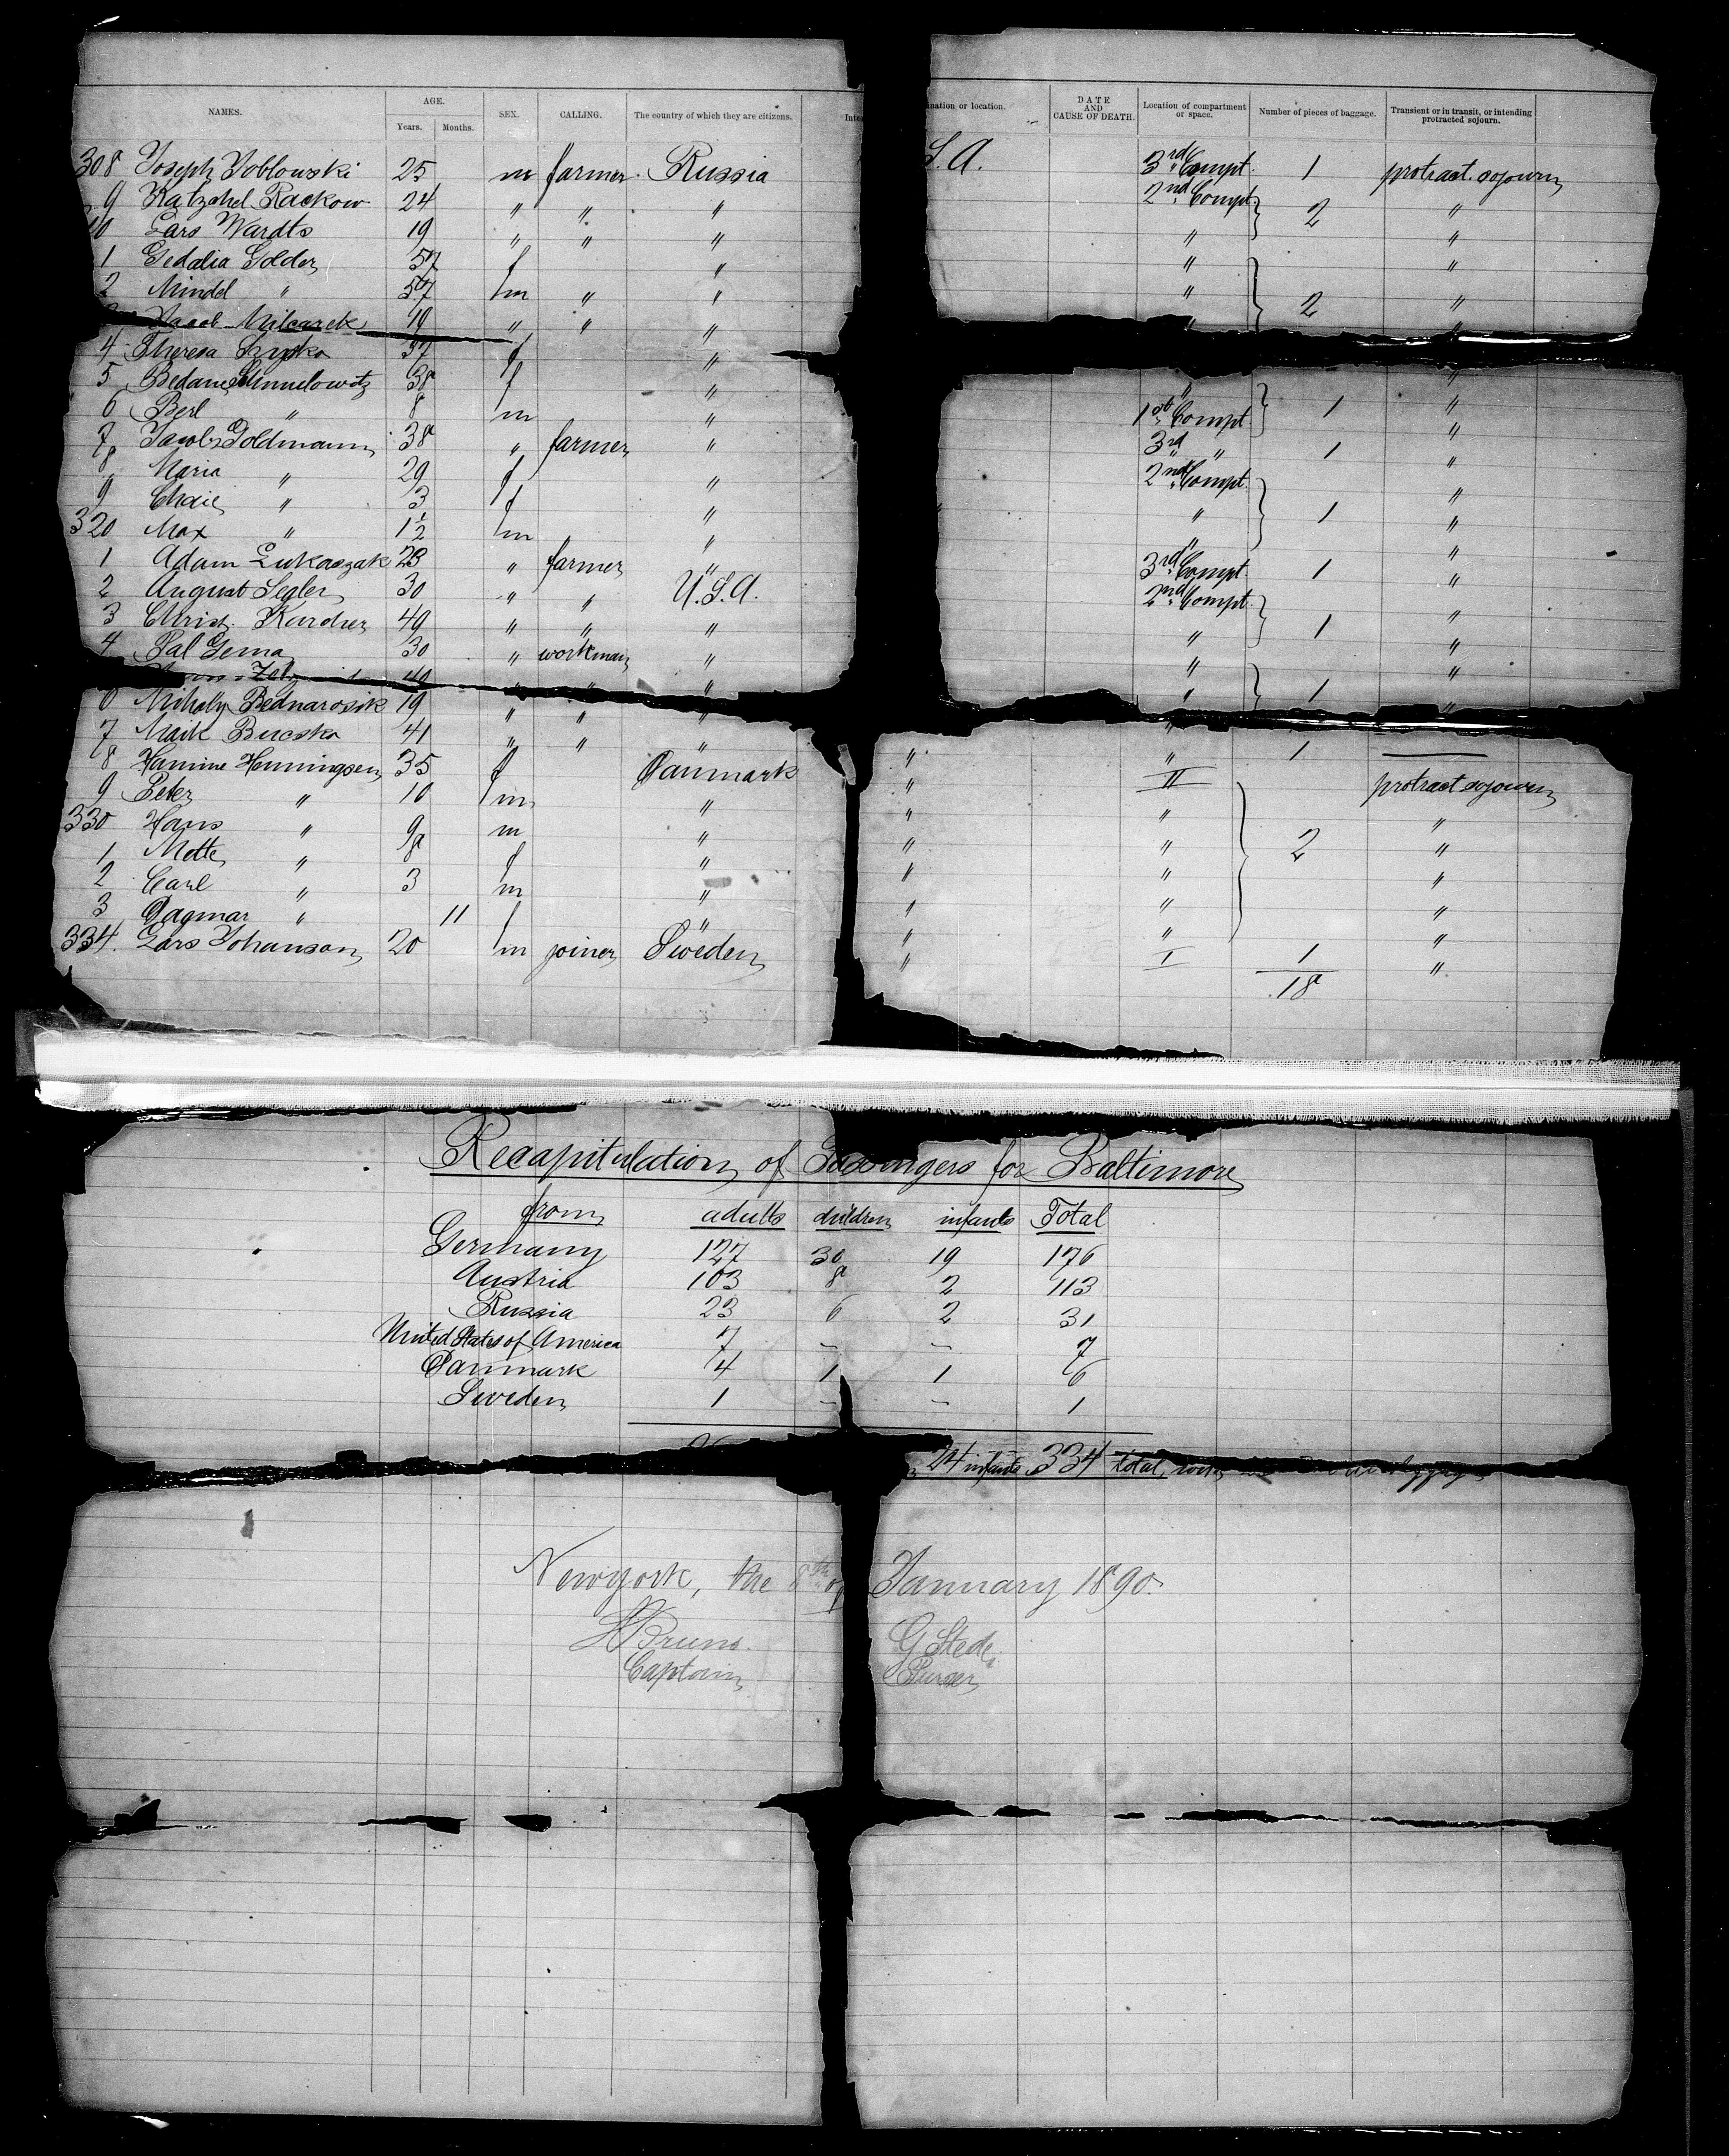 NAMES. AGE. Years. Months. SEX. CALLING. The country of which they are citizens. Inte
ination or location. DATE AND CAUSE OF DEATH. Location of compartment or space. Number of pieces of baggage. Transient or in transit, or intending protracted sojourn.
308 Joseph Joblowski 25 m farmer Russia S.A. 3rd Compt. 1 protract. sojourn
9 Katzchel Rackow 24 " " " 2nd Compt. 2 "
10 Lars Wardts 19 " " " " "
1 Gedalia Golder 57 f " " "
2 Mindel " 57 m " " " 2 "
Milcarek 19 " " "
4 Theresa 37 f "
5 38 f " " "
6 Berl " 8 m " 1st Compt. 1 "
7 Jacob Goldmann 38 " farmer " 3rd " 1 "
8 Maria " 29 f " 2nd Compt. "
9 Chaie " 3 f " " 1 "
320 Max " 1½ m " " "
1 Adam Lukaszak 23 " farmer " 3rd Compt. 1 "
2 August Segler 30 " " U.S.A. 2nd Compt. "
3 Christ. Kardier 49 " " " " 1 "
4 Pal Gema 30 " workman " " "
40 " " " " 1 "
6 Mihaly Bednarosik 19 " " " "
7 Maik Bucsko 41 " " " " " 1
8 Hamine Henningsen 35 f Danmark " II protract sojourn
9 Peter " 10 m " " " "
330 Hans " 9 m " " " 2 "
1 Mette " 8 f " " " "
2 Carl " 3 m " " " "
3 Dagmar " 11 f " " " "
334. Lars Johanson 20 m joiner Sweden " I 1 "
18
Recapitulation of Passengers for Baltimore
from adults children infants Total
Germany 127 30 19 176
Austria 103 8 2 113
Russia 23 6 2 31
United States of America 7 – – 7
Danmark 4 1 1 6
Sweden 1 – – 1
24 infants 334 total,
Newyork, the 8th of January 1890.
H Bruns. G Stede
Captain Purser